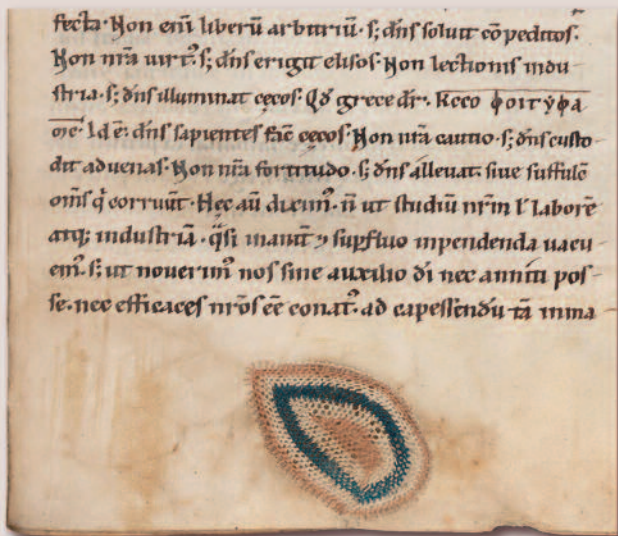 fecta· Non eni̅ liberu̅ arbitriu̅· s; dn̅s soluit co̅peditos.
Non nr̅a uirt᾽· s; dn̅s erigit elisos· Non lectionis indu-
stria· s; dn̅s illuminat cęcos· Qđ grece dr̅·
Id e̅· dn̅s sapientes fac̅ cęcos· Non nr̅a cautio· s; dn̅s custo
dit aduenas· Non nr̅a fortitudo· s; dn̅s alleuat· siue suffulc̅
om̅s q̅ corruu̅t· Hęc au̅ dixim᾽· n̅ ut studiu̅ nr̅m l̅ labore̅
atq; industria̅· q̅si inanit᾽ & supfluo inpendenda uacu-
em᾽· s; ut nouerim᾽ nos sine auxilio di̅ nec anniti pos-
se· nec efficaces nr̅os ee̅ conat᾽· ad capessendu̅ ta̅ inma